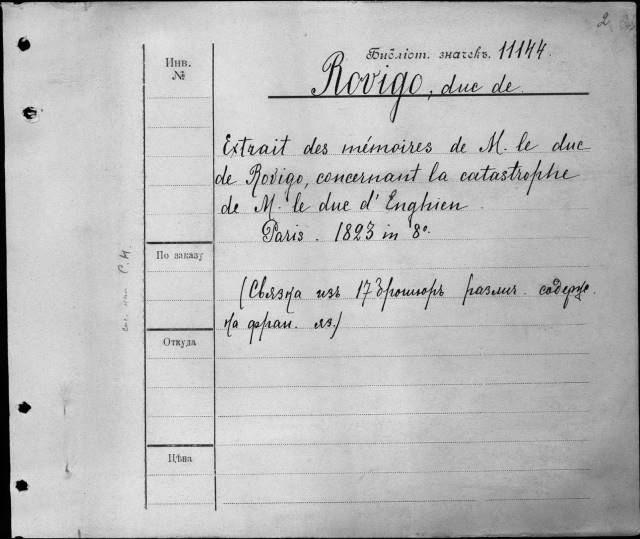 2
Инв.
№
Библіот. значекъ. 11144.
Rovigo, duc de.
Extrait des mémoires de M. le duc
de Rovigo, concernant la catastrophe
de M. le duc d'Enghien.
Paris. 1823 in 8°.
По заказу
(Связка изъ 17 брошюръ различ. содерж.
на фран. яз.)
Откуда
Цѣна